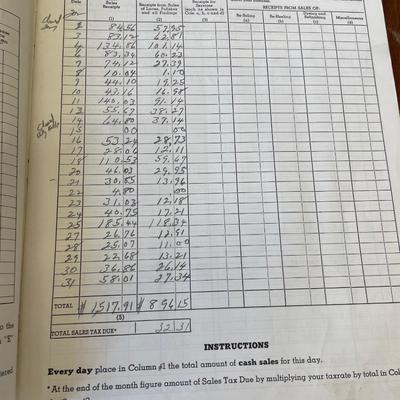 Date Sales Receipts Receipts from Sales of Laces, Polishes and all Findings Receipts for Services (such as shown in Cols. a, b, c and d) RECEIPTS FROM SALES OF:
Re-Soling Re-Heeling Dyeing and Refinishing Miscellaneous
(1) (2) (3) (a) (b) (c) (d)
2 84.56 57.95
3 83.12 62.81
4 134.86 101.14
6 83.34 60.23
7 74.12 27.39
8 10.04 1.10
9 44.10 19.25
10 43.16 16.98
11 140.03 91.14
13 55.67 38.27
14 64.80 37.14
15 00 .00
16 53.24 28.73
17 28.06 12.11
18 110.53 59.67
20 46.03 29.95
21 30.85 13.96
22 4.80 .00
23 31.03 12.18
24 40.75 17.21
25 185.44 118.34
27 26.76 12.91
28 25.07 11.00
29 22.68 13.21
30 36.86 26.14
31 58.01 27.34
TOTAL $1517.91 $896.15
(5)
TOTAL SALES TAX DUE* 32.31
INSTRUCTIONS
Every day place in Column #1 the total amount of cash sales for this day.
*At the end of the month figure amount of Sales Tax Due by multiplying your taxrate by total in Col